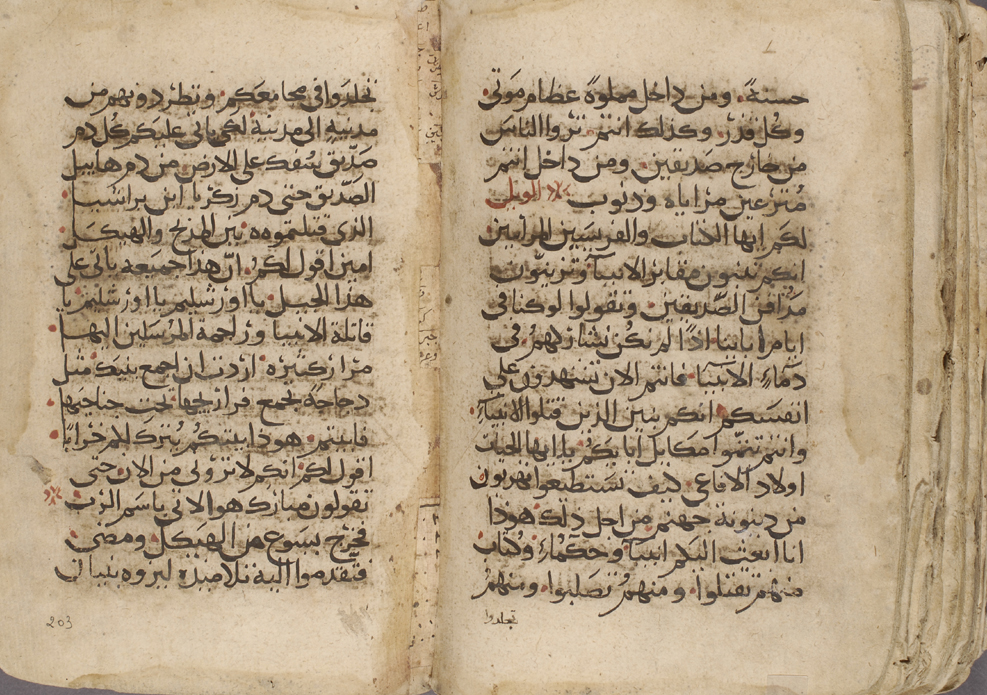 حسنة. ومن داخل مملوة عظام موتي.
وكل قذر. وكذلك انتم تروا الناس
من خارج صديقين. ومن داخل انتم
مترعين مراياه وذنوب الويل
لكم ايها الكتاب والفريسيين المرايين
انكم تبنون مقابر الانبيا وتزينون
مدافن الصديقين. وتقولوا لو كنا في
ايام ابآينا اذًا لم نكن نشاركهم في
دماء الانبيا. فانتم الان تشهدون علي
انفسكم انكم بنين الذين قتلوا الانبياء.
وانتم تتموا مكايل ابايكم يا ايها الحيات
اولاد الافاعي. كيف تستطيعوا تهربون
من دينونة جهنم من اجل ذلك هوذا
انا ابعث اليكم انبيا وحكماء وكتاب
منهم تقتلوا. ومنهم تصلبوا. ومنهم
تجلدوا
تجلدوا في مجامعكم. وتطردونهم من
مدينه الي مدينة لكي ياتي عليكم كل دم
صديق سفك علي الارض من دم هابيل
الصديق حتي دم زكريا ابن براشيا.
الذي قتلتموه بين المذبح والهيكل.
امين اقول لكم. ان هذا جميعه ياتي علي
هذا الجيل. يا اورشيليم يا اورشليم يا
قاتلة الانبيا وراجمة المرسلين اليها.
مرار كثيره اردت ان اجمع بنيك مثل
دجاجة تجمع فراريجها تحت جناحيها.
فابيتم. هوذا بيتكم يترك لكم خرابًا.
اقول لكم انكم لا تروني من الان حتي
تقولون مبارك هو الاتي باسم الرب
فخرج يسوع من الهيكل ومضي.
وتقدموا اليه تلاميذه ليروه بنيان
203